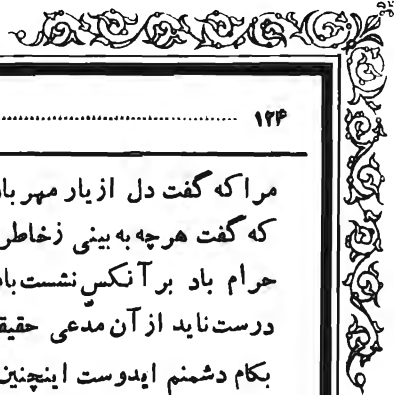 ۱۲۴
مرا که گفت دل از یار مهربان
که گفت هرچه به بینی زخاطر
حرام باد بر آنکس نشست با
درست ناید از آن مدّعی
بکام دشمنم ایدوست اینچنین